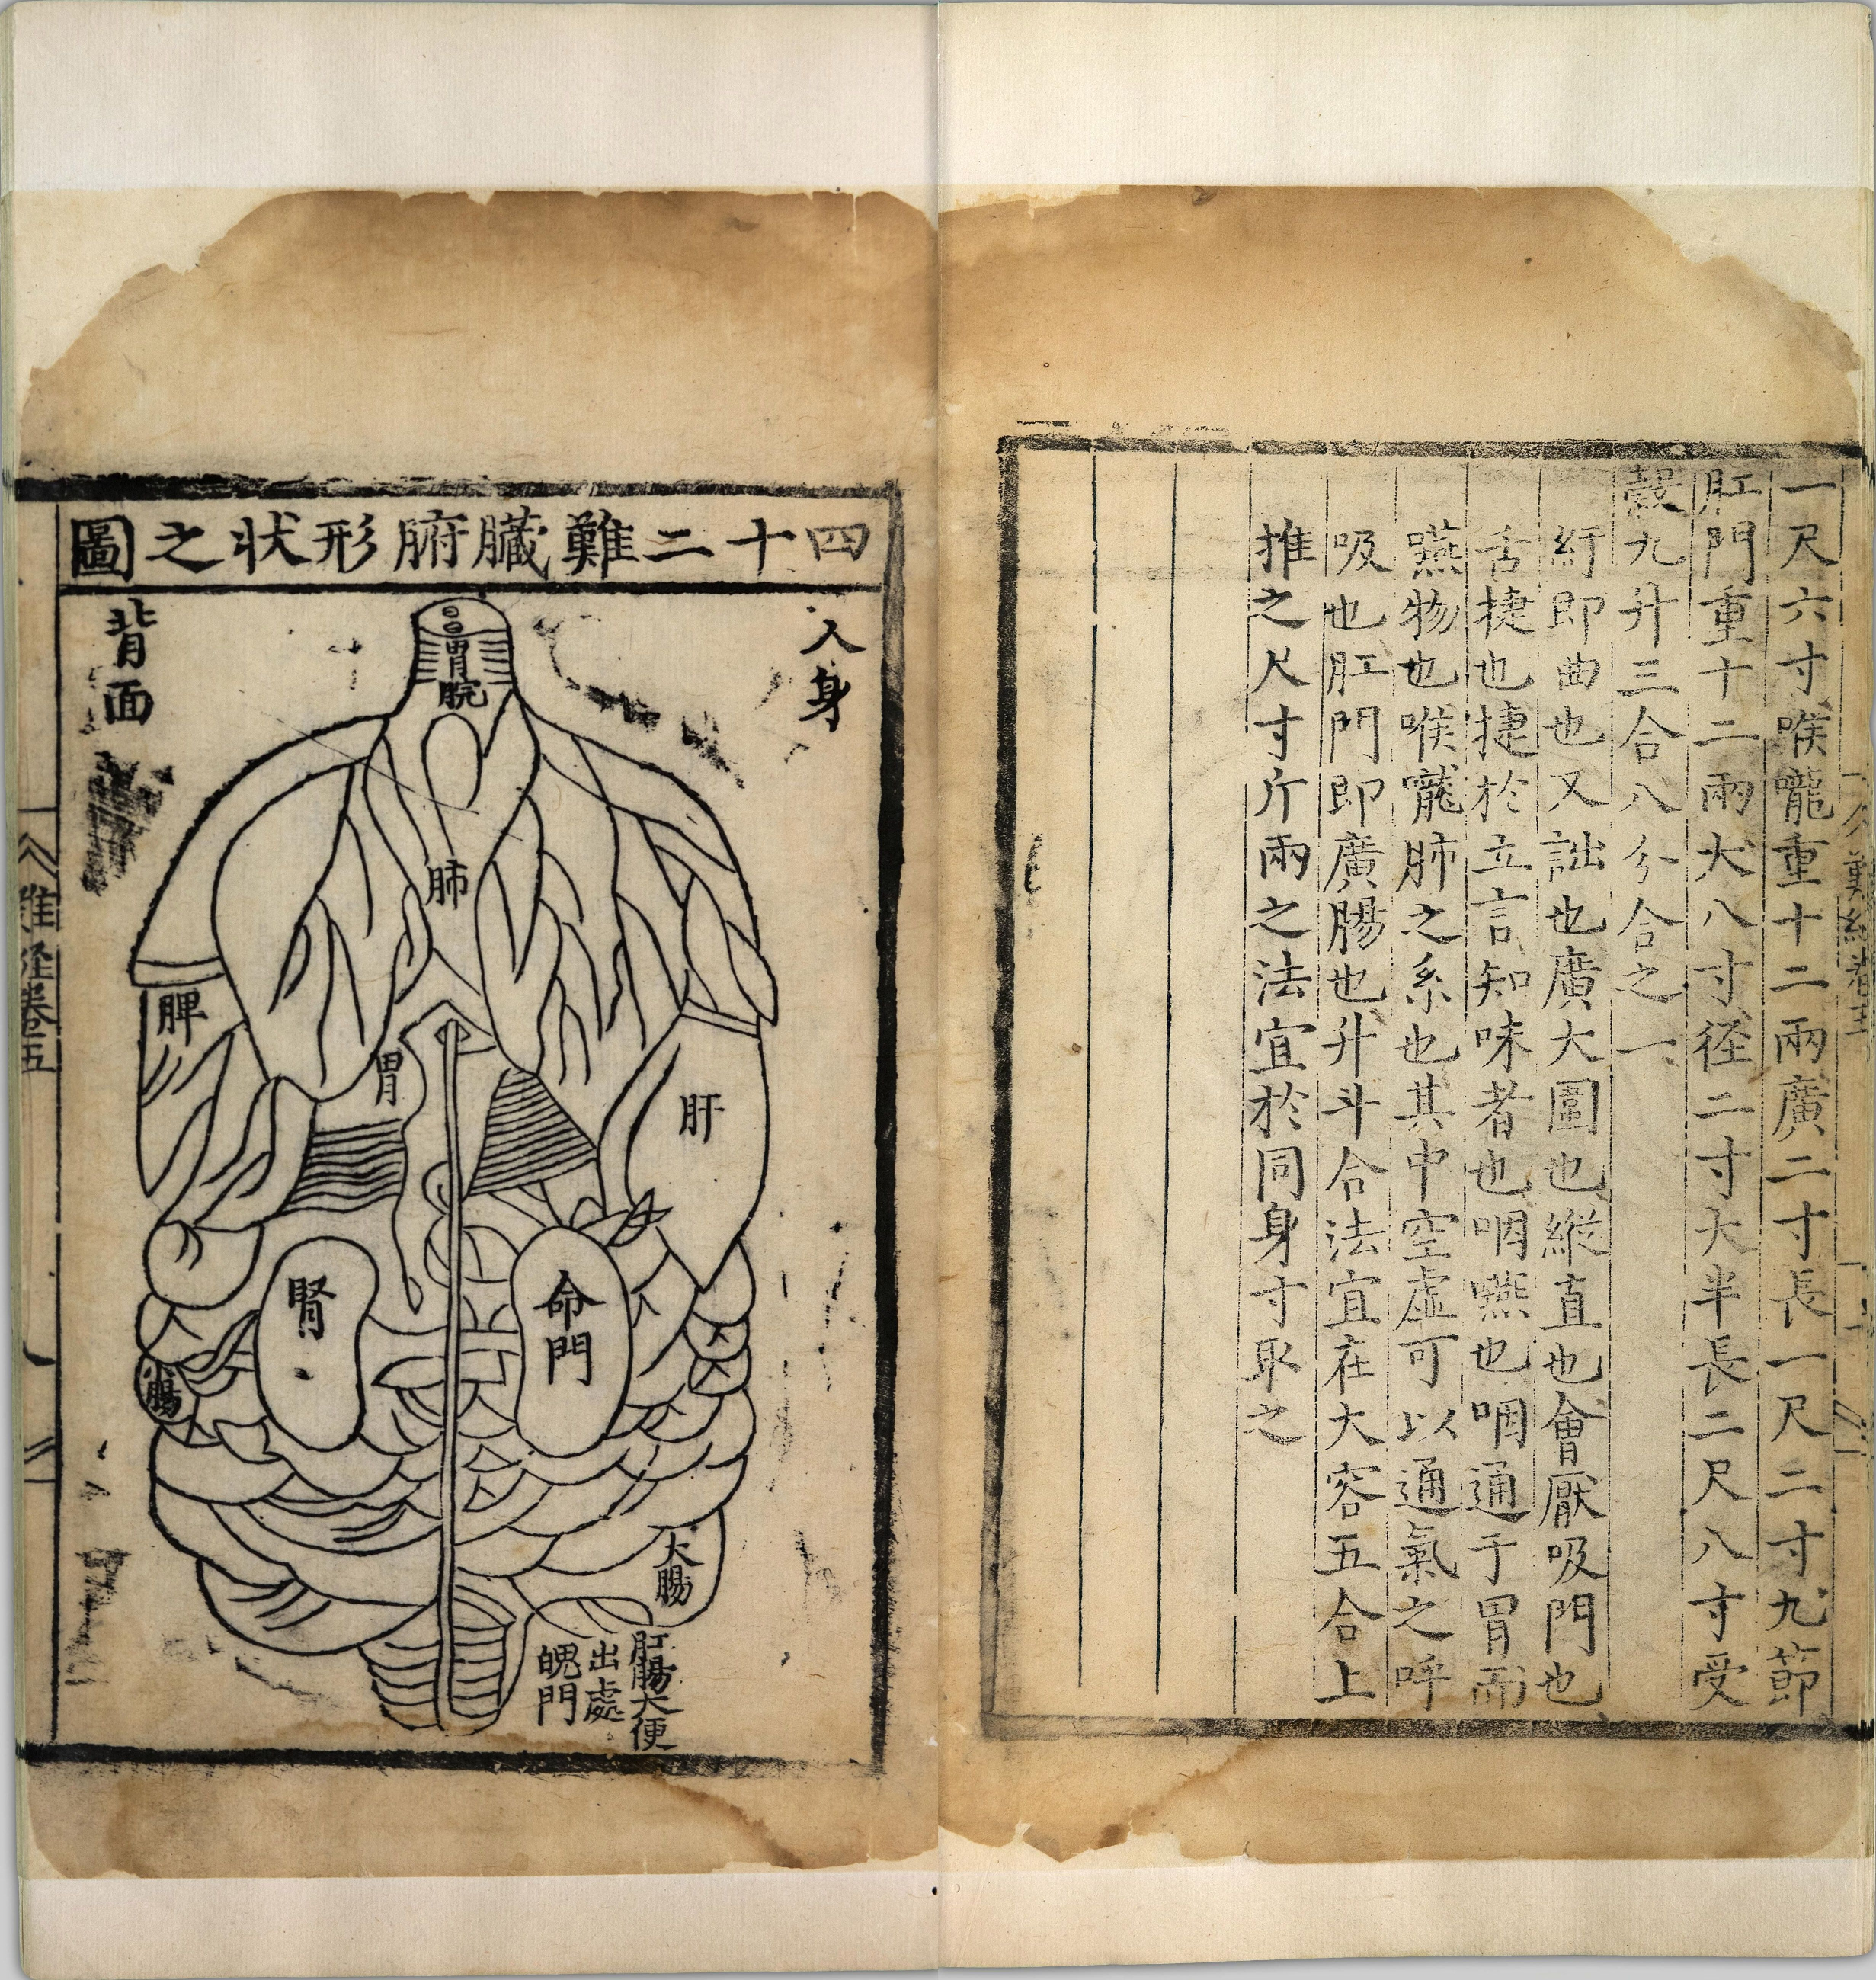 一尺六寸喉嚨重十二兩廣二寸長一尺二寸九節
肛門重十二兩大八寸径二寸大半長二尺八寸受
穀九升三合八分合之一
紆即曲也又詘也廣大圍也縱直也會厭吸門也
舌捷也捷於立言知味者也咽嚥也咽通于胃而
嚥物也喉嚨肺之系也其中空虛可以通氣之呼
吸也肛門即廣腸也升斗合法宜在大容五合上
推之尺寸斤兩之法宜於同身寸取之
四十二難臟腑形狀之圖
人身
背面
胃脘
肺
脾
胃
肝
腎
命門
腸
大腸
肛腸大便
出處
魄門
難経卷五